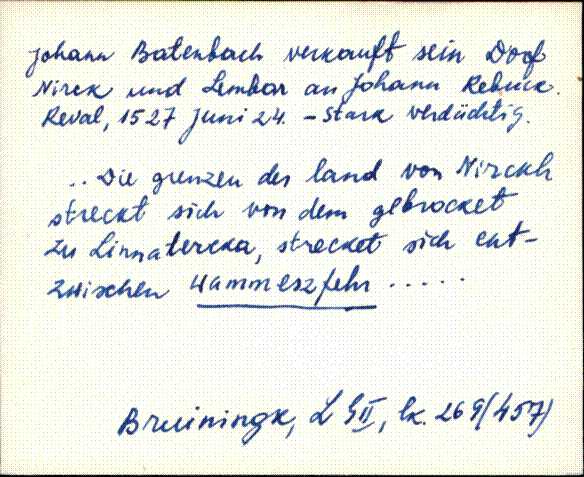 Johann Batenbach verkauft sein Dorf
Nirck und Lembar an Johann Rebuck.
Reval, 1527 Juni 24. – Stark verdächtig.
.. Die grenzen des land von Nirckh
streckt sich von dem gebrocket
zu Linnatercka, strecket sich ent-
zwischen Wammeszfehr .....
Bruiningk, L G II, lk. 269 (457)